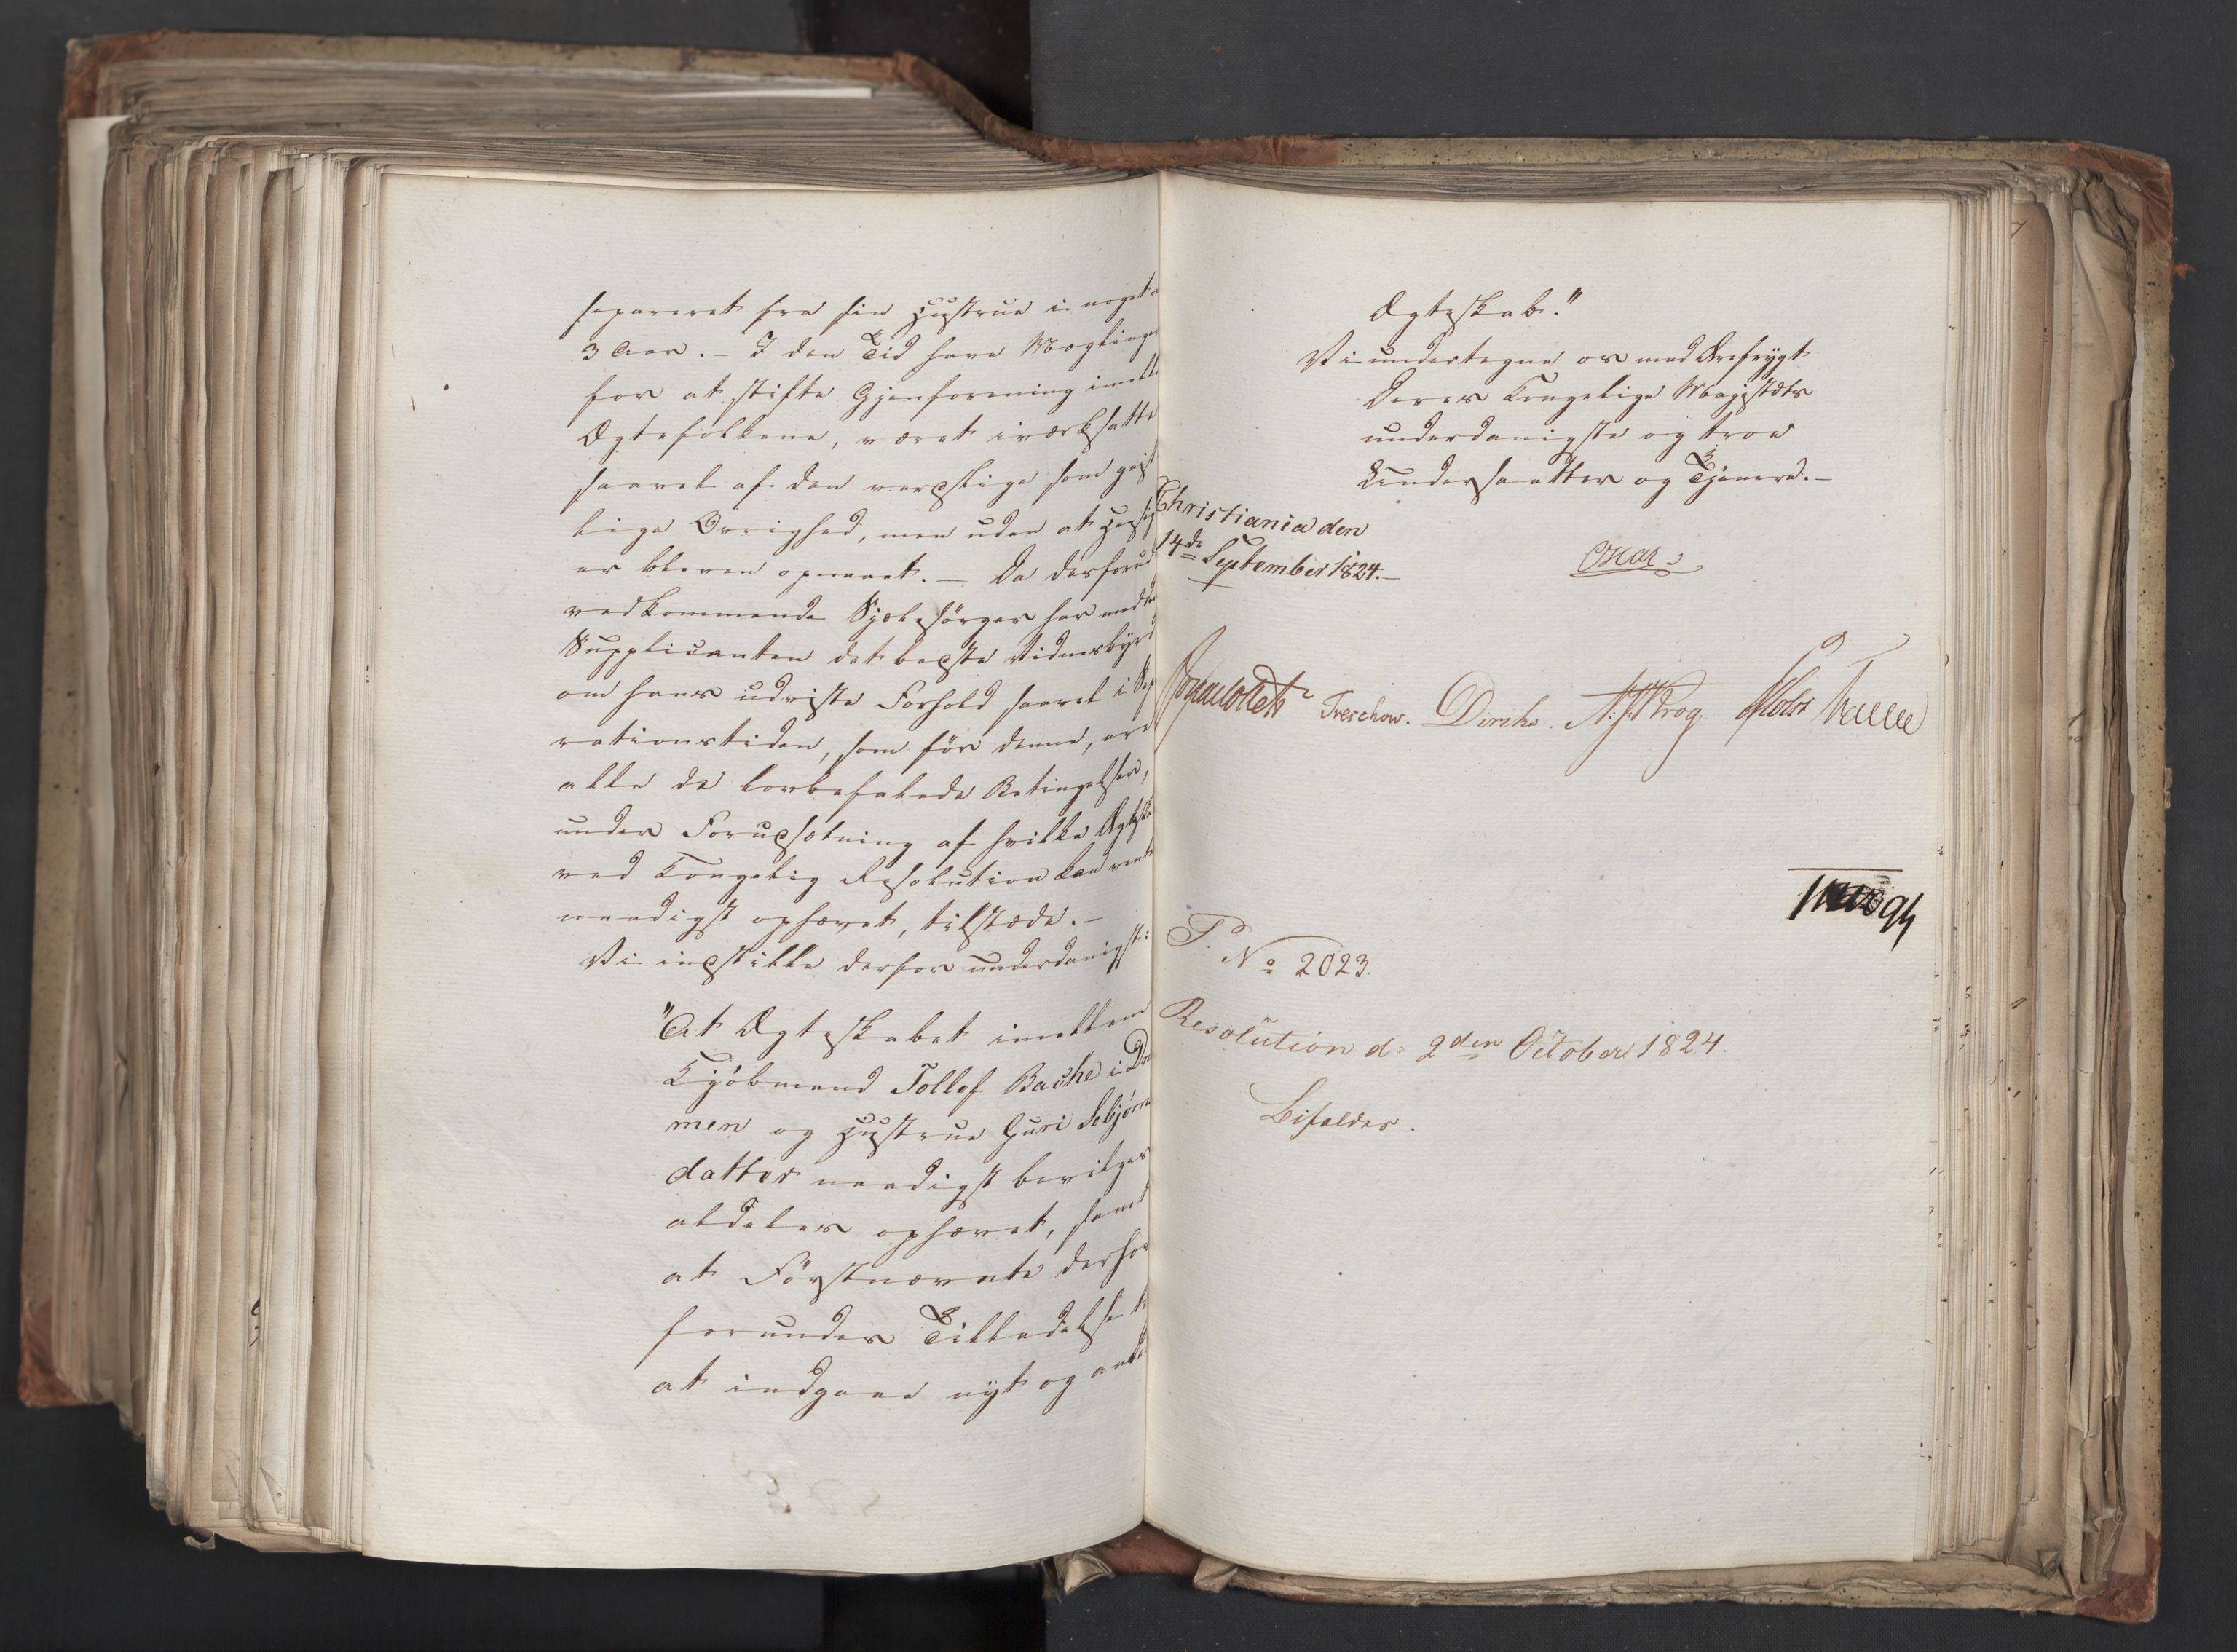 separeret fra sin Hustrue i noget o
3 Aar. – I den Tid have Mæglinge
for at stifte Gjenforening imell
Ægtefolkene, været iværksatte
saavel af den verdslige som geist
lige Øvrighed, men uden at Hensig
er bleven opnaaet. – Da desforud
vedkommende Sjælesörger har medd
Supplicanten det bedste Vidnesbyrd
om hans udviste Forhold saavel i Sep
rationstiden, som för denne, ere
alle de lovbefalede Betingelser,
under Forudsætning af hvilke Ægtesk
ved Kongelig Resolution kan vent
naadigst ophævet, tilstæde. –
Vi indstille derfor underdanigst:
"At Ægteskabet imellem
Kjöbmand Tollef Bache i Dra
men og Hustrue Guri Sebjørns
datter naadigst bevilges
aldeles ophævet, samt
at Förstnævnte derhos
forundes Tilladelse ti
at indgaae nyt og andet
Ægteskab."
Vi undertegne os med Ærefrygt
Deres Kongelige Majestæts
underdanigste og troe
Undersaatter og Tjenere. –
Christiania den
14de September 1824. –
Oscar
JCollett Treschow. Diriks. A.J.Krog Holst Fasting
P. No 2023.
Resolution d: 2den October 1824.
Bifaldes.